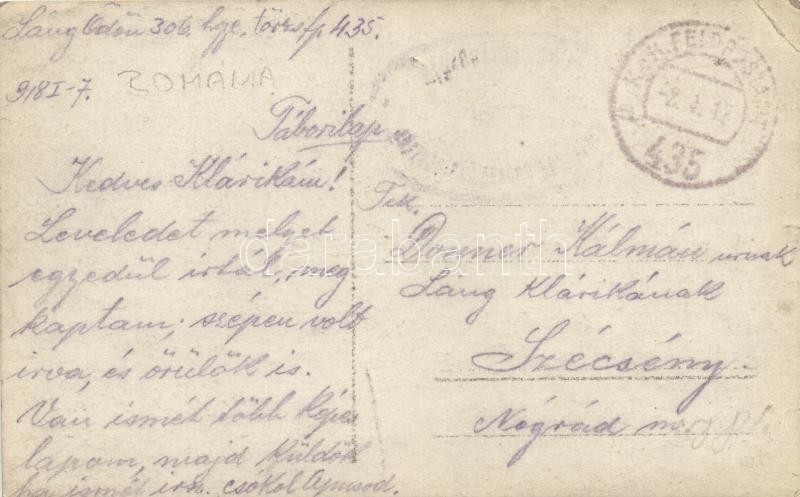 Láng Ödön 306. hgr. törzs fp 435.
918 I-7.
ROMANIA
Táborilap
Kedves Klárikám!
Leveledet melyet
egyedül irtál, meg
kaptam; szépen volt
irva, és örülök is.
Van ismét több képes
lapom, majd küldök
ha ismét irsz. csókol Apusod.
K.u.K. FELDPOSTAMT
435
Tek.
Dozner Kálmán urnak
Lang Klárikának
Szécsény
Nógrád m.
darabanth